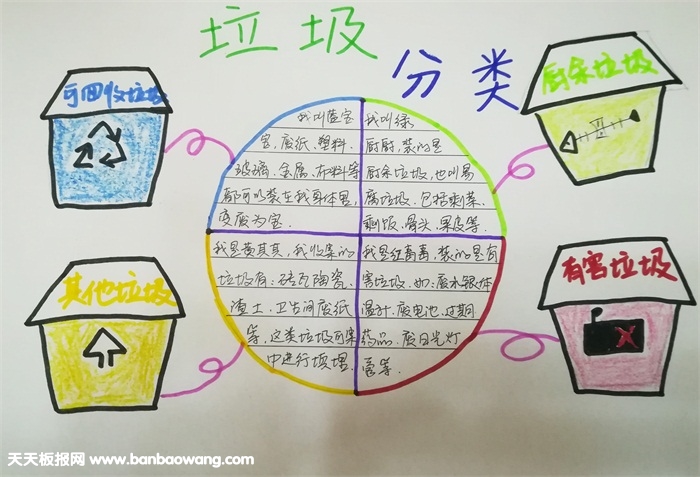 垃圾
分类
可回收垃圾
厨余垃圾
我叫蓝宝
宝，废纸、塑料、
玻璃、金属、布料等
都可以装在我身体里，
变废为宝
我叫绿
厨厨，装的是
厨余垃圾，也叫易
腐垃圾，包括剩菜、
剩饭、骨头、果皮等.
其他垃圾
有害垃圾
我是黄其其，我收集的
垃圾有：砖瓦陶瓷、
渣土、卫生间废纸
等，这类垃圾可集
中进行填埋.
我是红毒毒，装的是有
害垃圾，如：废水银体
温计、废电池、过期
药品、废日光灯
管等.
天天板报网 www.banbaowang.com